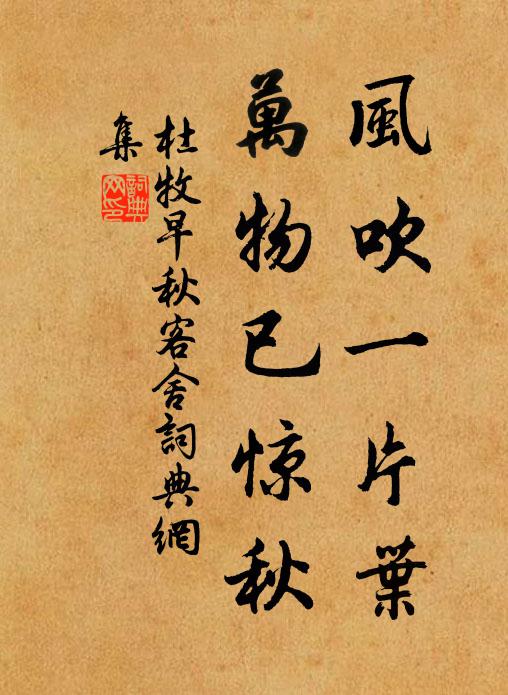 風吹一片葉
萬物已惊秋
杜牧早秋客舍詞典網
集
詞典网印